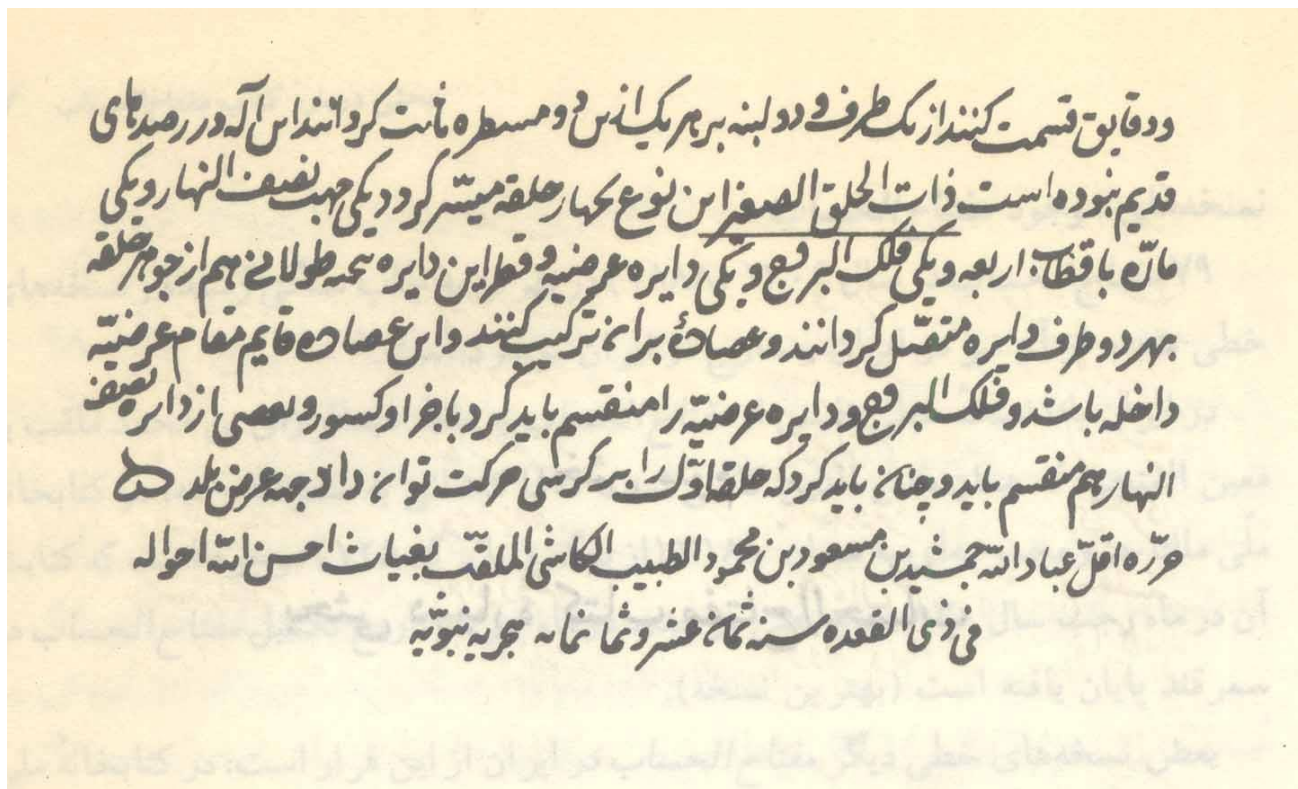 ودقایق قسمت کنند از یک طرف و دو لبنه بر هر یک ازین دو مسطره ثابت کردانند این آله در رصدهای
قدیم نبوده است ذات الحلق الصغیر این نوع بچهار حلقه میسّر کردد یکی جهت نصف النهار و یکی
مارّه باقطاب اربعه و یکی فلک البروج و یکی دایره عرضیه و قطر این دایره هم از جوهر حلقه
بهر دو طرف دایره متصل کردانند و عضادهٔ بران ترکیب کنند و این عضاده قایم مقام عرضیّه
داخله باشد و فلک البروج و دایره عرضیّه را منقسم باید کرد باجزا و کسور و بعضی از دایره نصف
النهار هم منقسم باید و چنان باید کرد که حلقه اوّل را بر کرسی حرکت توان داد جهة عرض بلد
حرّره اقلّ عباد الله جمشید بن مسعود بن محمود الطبیب الکاشی الملقّب بغیاث احسن الله احواله
فی ذی القعده سنه ثمان عشر و ثمانمائه هجریه نبویّه